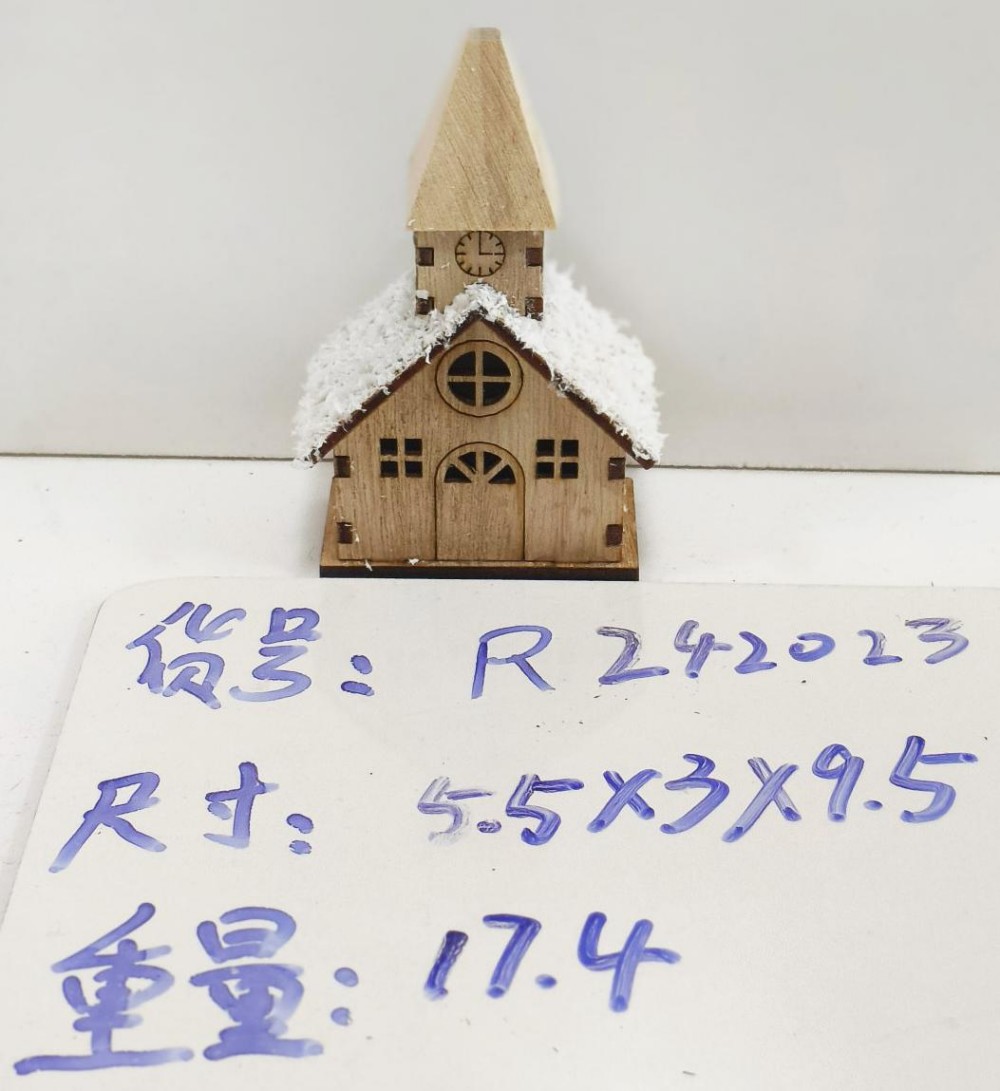 货号: R242023
尺寸: 5.5×3×9.5
重量: 17.4